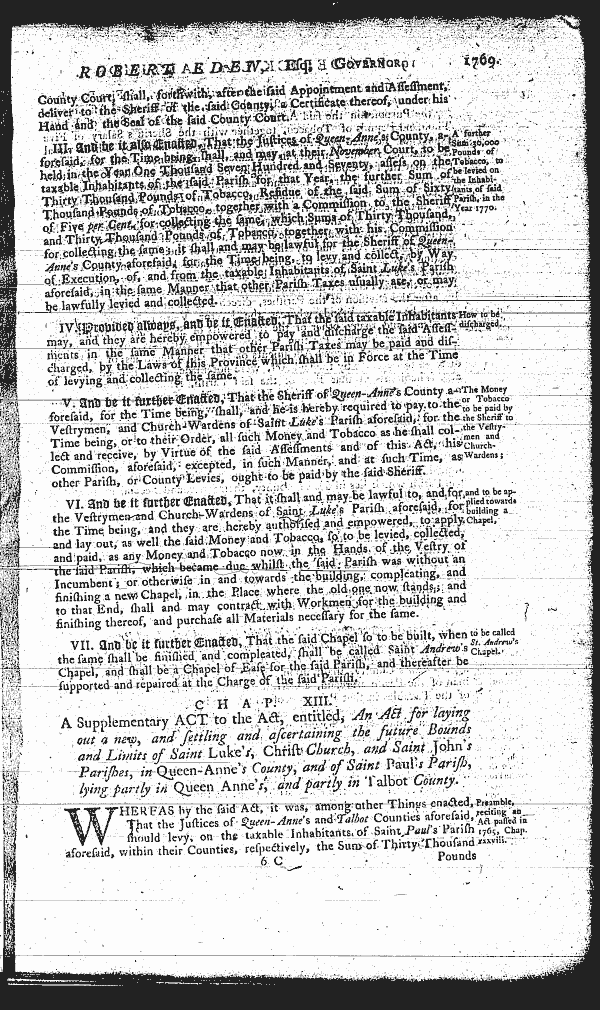 ROBERT EDEN, Esq; GOVERNOR. 1769.
County Court, shall, forthwith, after the said Appointment and Assessment,
deliver to the Sheriff of the said County, a Certificate thereof, under his
Hand and the Seal of the said County Court.
III. And be it also Enacted, That the Justices of Queen-Anne's County, a-
foresaid, for the Time being, shall, and may, at their November Court, to be
held in the Year One Thousand Seven Hundred and Seventy, assess on the
taxable Inhabitants of the said Parish for that Year, the further Sum of
Thirty Thousand Pounds of Tobacco, Residue of the said Sum of Sixty
Thousand Pounds of Tobacco, together with a Commission to the Sheriff
of Five per Cent. for collecting the same; which Sums of Thirty Thousand,
and Thirty Thousand Pounds of Tobacco, together with his Commission
for collecting the same, it shall and may be lawful for the Sheriff of Queen-
Anne's County aforesaid, for the Time being, to levy and collect, by Way
of Execution, of, and from the taxable Inhabitants of Saint Luke's Parish
aforesaid, in the same Manner that other Parish Taxes usually are, or may
be lawfully levied and collected.
A further
Sum 30,000
Pounds of
Tobacco, to
be levied on
the Inhabi-
tants of said
Parish, in the
Year 1770.
IV. Provided always, and be it Enacted, That the said taxable Inhabitants
may, and they are hereby empowered to pay and discharge the said Assess-
ments in the same Manner that other Parish Taxes may be paid and dis-
charged, by the Laws of this Province which shall be in Force at the Time
of levying and collecting the same.
How to be
discharged.
V. And be it further Enacted, That the Sheriff of Queen-Anne's County a-
foresaid, for the Time being, shall, and he is hereby required to pay to the
Vestrymen, and Church-Wardens of Saint Luke's Parish aforesaid, for the
Time being, or to their Order, all such Money and Tobacco as he shall col-
lect and receive, by Virtue of the said Assessments and of this Act, his
Commission, aforesaid, excepted, in such Manner, and at such Time, as
other Parish, or County Levies, ought to be paid by the said Sheriff.
The Money
or Tobacco
to be paid by
the Sheriff to
the Vestry-
men and
Church-
Wardens;
VI. And be it further Enacted, That it shall and may be lawful to, and for
the Vestrymen and Church-Wardens of Saint Luke's Parish aforesaid, for
the Time being, and they are hereby authorised and empowered, to apply
and lay out, as well the said Money and Tobacco, so to be levied, collected,
and paid, as any Money and Tobacco now in the Hands of the Vestry of
the said Parish, which became due whilst the said Parish was without an
Incumbent; or otherwise in and towards the building, compleating, and
finishing a new Chapel, in the Place where the old one now stands; and
to that End, shall and may contract with Workmen for the building and
finishing thereof, and purchase all Materials necessary for the same.
and to be ap-
plied towards
building a
Chapel,
VII. And be it further Enacted, That the said Chapel so to be built, when
the same shall be finished and compleated, shall be called Saint Andrew's
Chapel, and shall be a Chapel of Ease for the said Parish, and thereafter be
supported and repaired at the Charge of the said Parish.
to be called
St. Andrew's
Chapel.
CHAP. XIII.
A Supplementary ACT to the Act, entitled, An Act for laying
out a new, and settling and ascertaining the future Bounds
and Limits of Saint Luke's, Christ Church, and Saint John's
Parishes, in Queen-Anne's County, and of Saint Paul's Parish,
lying partly in Queen Anne's, and partly in Talbot County.
WHEREAS by the said Act, it was, among other Things enacted,
That the Justices of Queen-Anne's and Talbot Counties aforesaid,
should levy, on the taxable Inhabitants of Saint Paul's Parish
aforesaid, within their Counties, respectively, the Sum of Thirty Thousand
Preamble,
reciting an
Act passed in
1765, Chap.
xxxviii.
6 C
Pounds